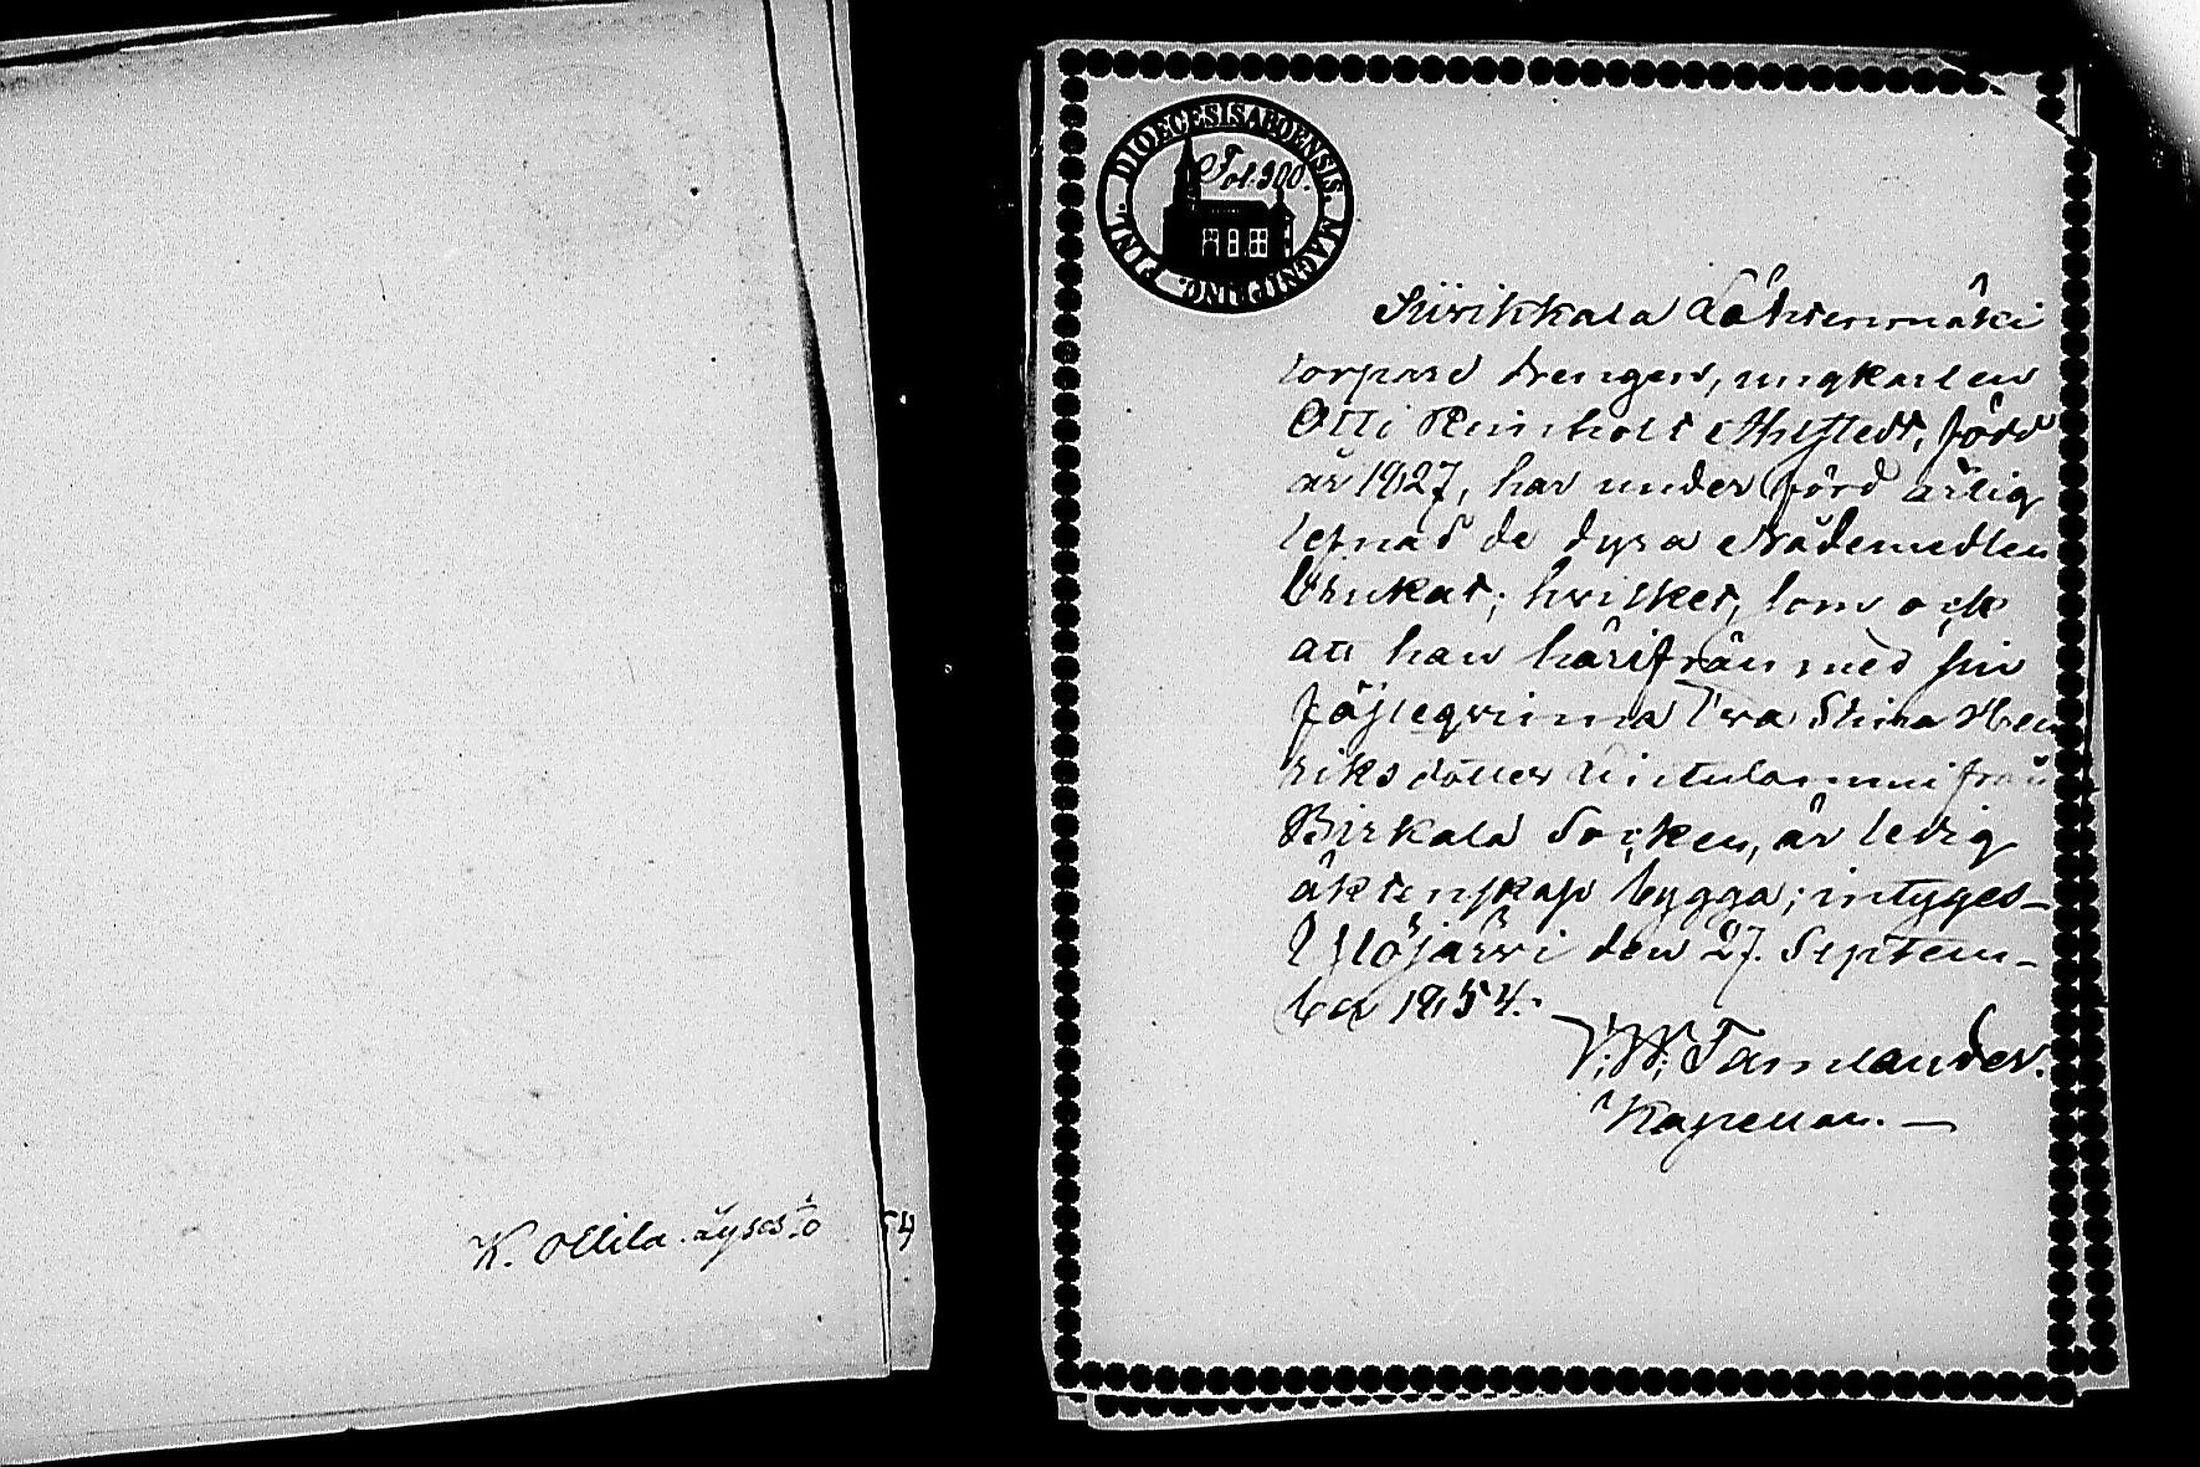 K. Ollila. Lyses 1/10
54
DIOECESIS ABOENSIS. MAGNI PRINC. FINL.
Fol. 300.
Siirikkala Lähteenmäki
torpare drengen, ungkarlen
Otto Reinholt Ahlstedt, född
år 1827, har under förd ärlig
lefnad de dyra Nådemedlen
brukat; hvilket, som ock
att han härifrån med sin
följeqvinna Eva Stina Hen
riksdotter från
Birkala Socken, är ledig
äktenskap bygga; intyges_
Ylöjärvi den 27. Septem_
ber 1854.
Kapellan. —